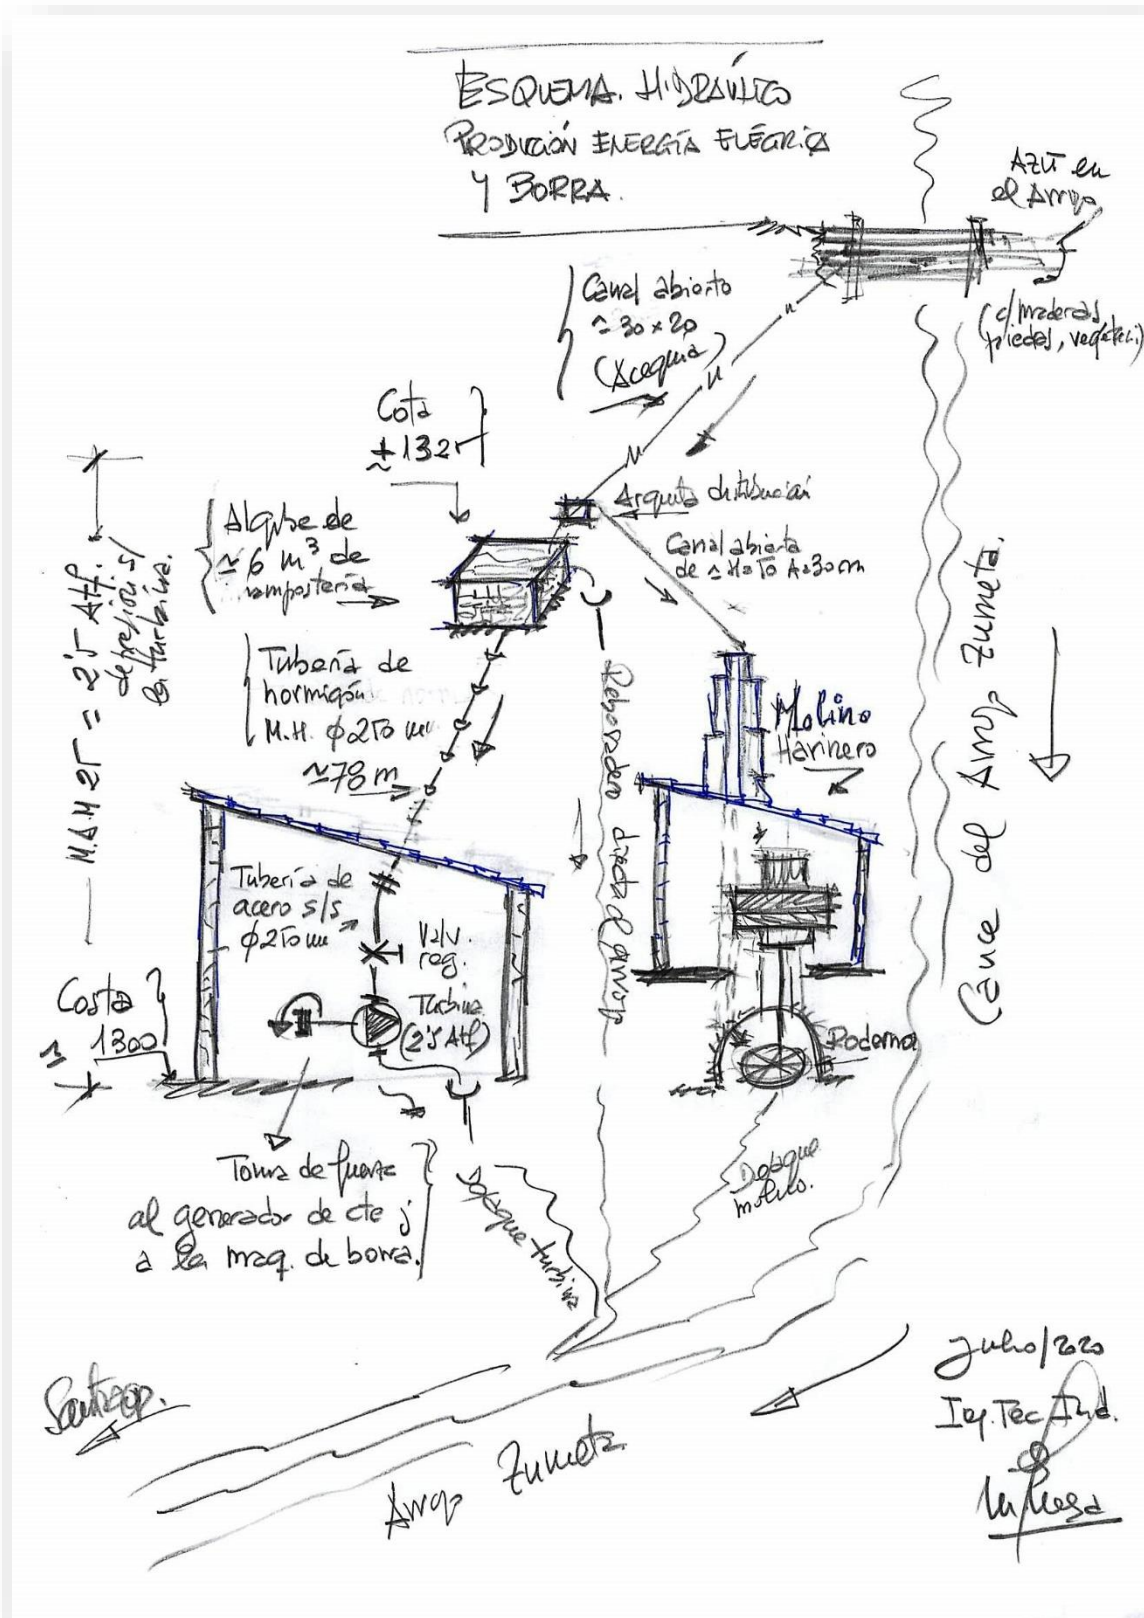 ESQUEMA. HIDRAÚLICO
PRODUCIÓN ENERGÍA ELÉCTRICA
Y BORRA.
AZUT en
el Arroyo
(c/maderas,
piedas, vegetal.)
Canal abierto
≃ 30 x 20
(Acequia)
Cota
± 1325
Arqueta distribución
Aljibe de
≃ 6 m³ de
mampostería
Canal abierto
de
M.A.M 25 = 2'5 Atf.
depresión s/
la turbina.
Tubería de
hormigón
M.H. ϕ 250 mm
≃78 m
Rebosadero directo al arroyo
Molino
Harinero
Cauce del Arroyo Zumeta.
Tubería de
acero s/s
ϕ 250 mm
Valv.
reg.
Turbina
(2'5 Atf)
Costa
1300
Rodezno
Toma de fuerza
al generador de cte y
a la maq. de borra.
Desague turbina
Desague
molino.
Santiago.
Arroyo Zumeta
Julio/2020
Ing. Tec. Ind.